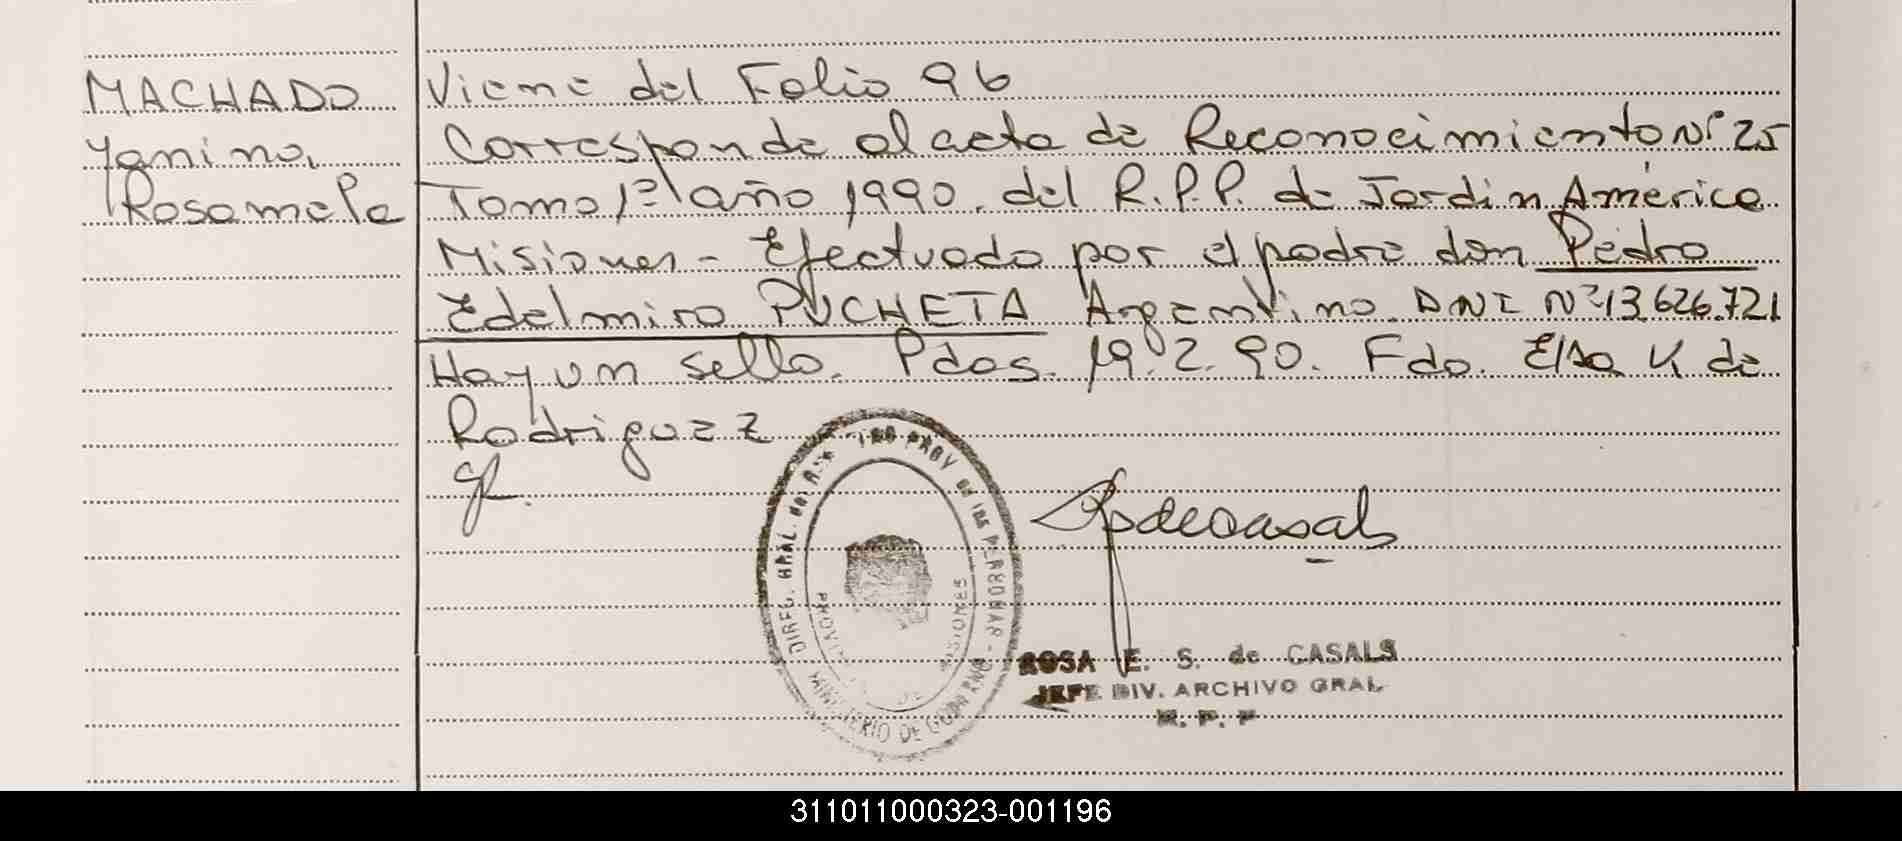 MACHADO
Yanina,
Rosamela
Viene del Folio 96
Corresponde al acta de Reconocimiento Nº 25
Tomo 1º año 1990. del R.P.P. de Jardin América
Misiones - Efectuado por el padre don Pedro
Edelmiro PUCHETA Argentino. DNI Nº 13.626.721
Hay un sello. Pdas. 19.2.90. Fdo. Elsa K de
Rodriguez
MINISTERIO DE GOBIERNO
MISIONES
ROSA E. S. de CASALS
JEFE DIV. ARCHIVO GRAL.
R. P. P
311011000323-001196